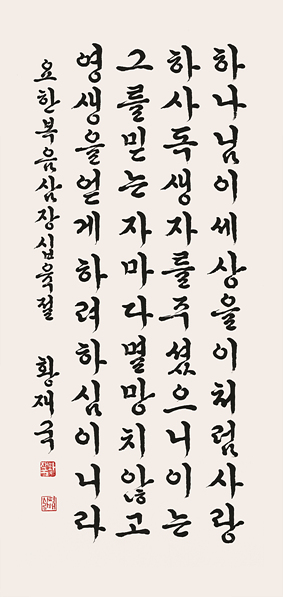 하나님이세상을이처럼사랑
하사독생자를주셨으니이는
그를믿는자마다멸망치않고
영생을얻게하려하심이니라
요한복음삼장십육절 황재국